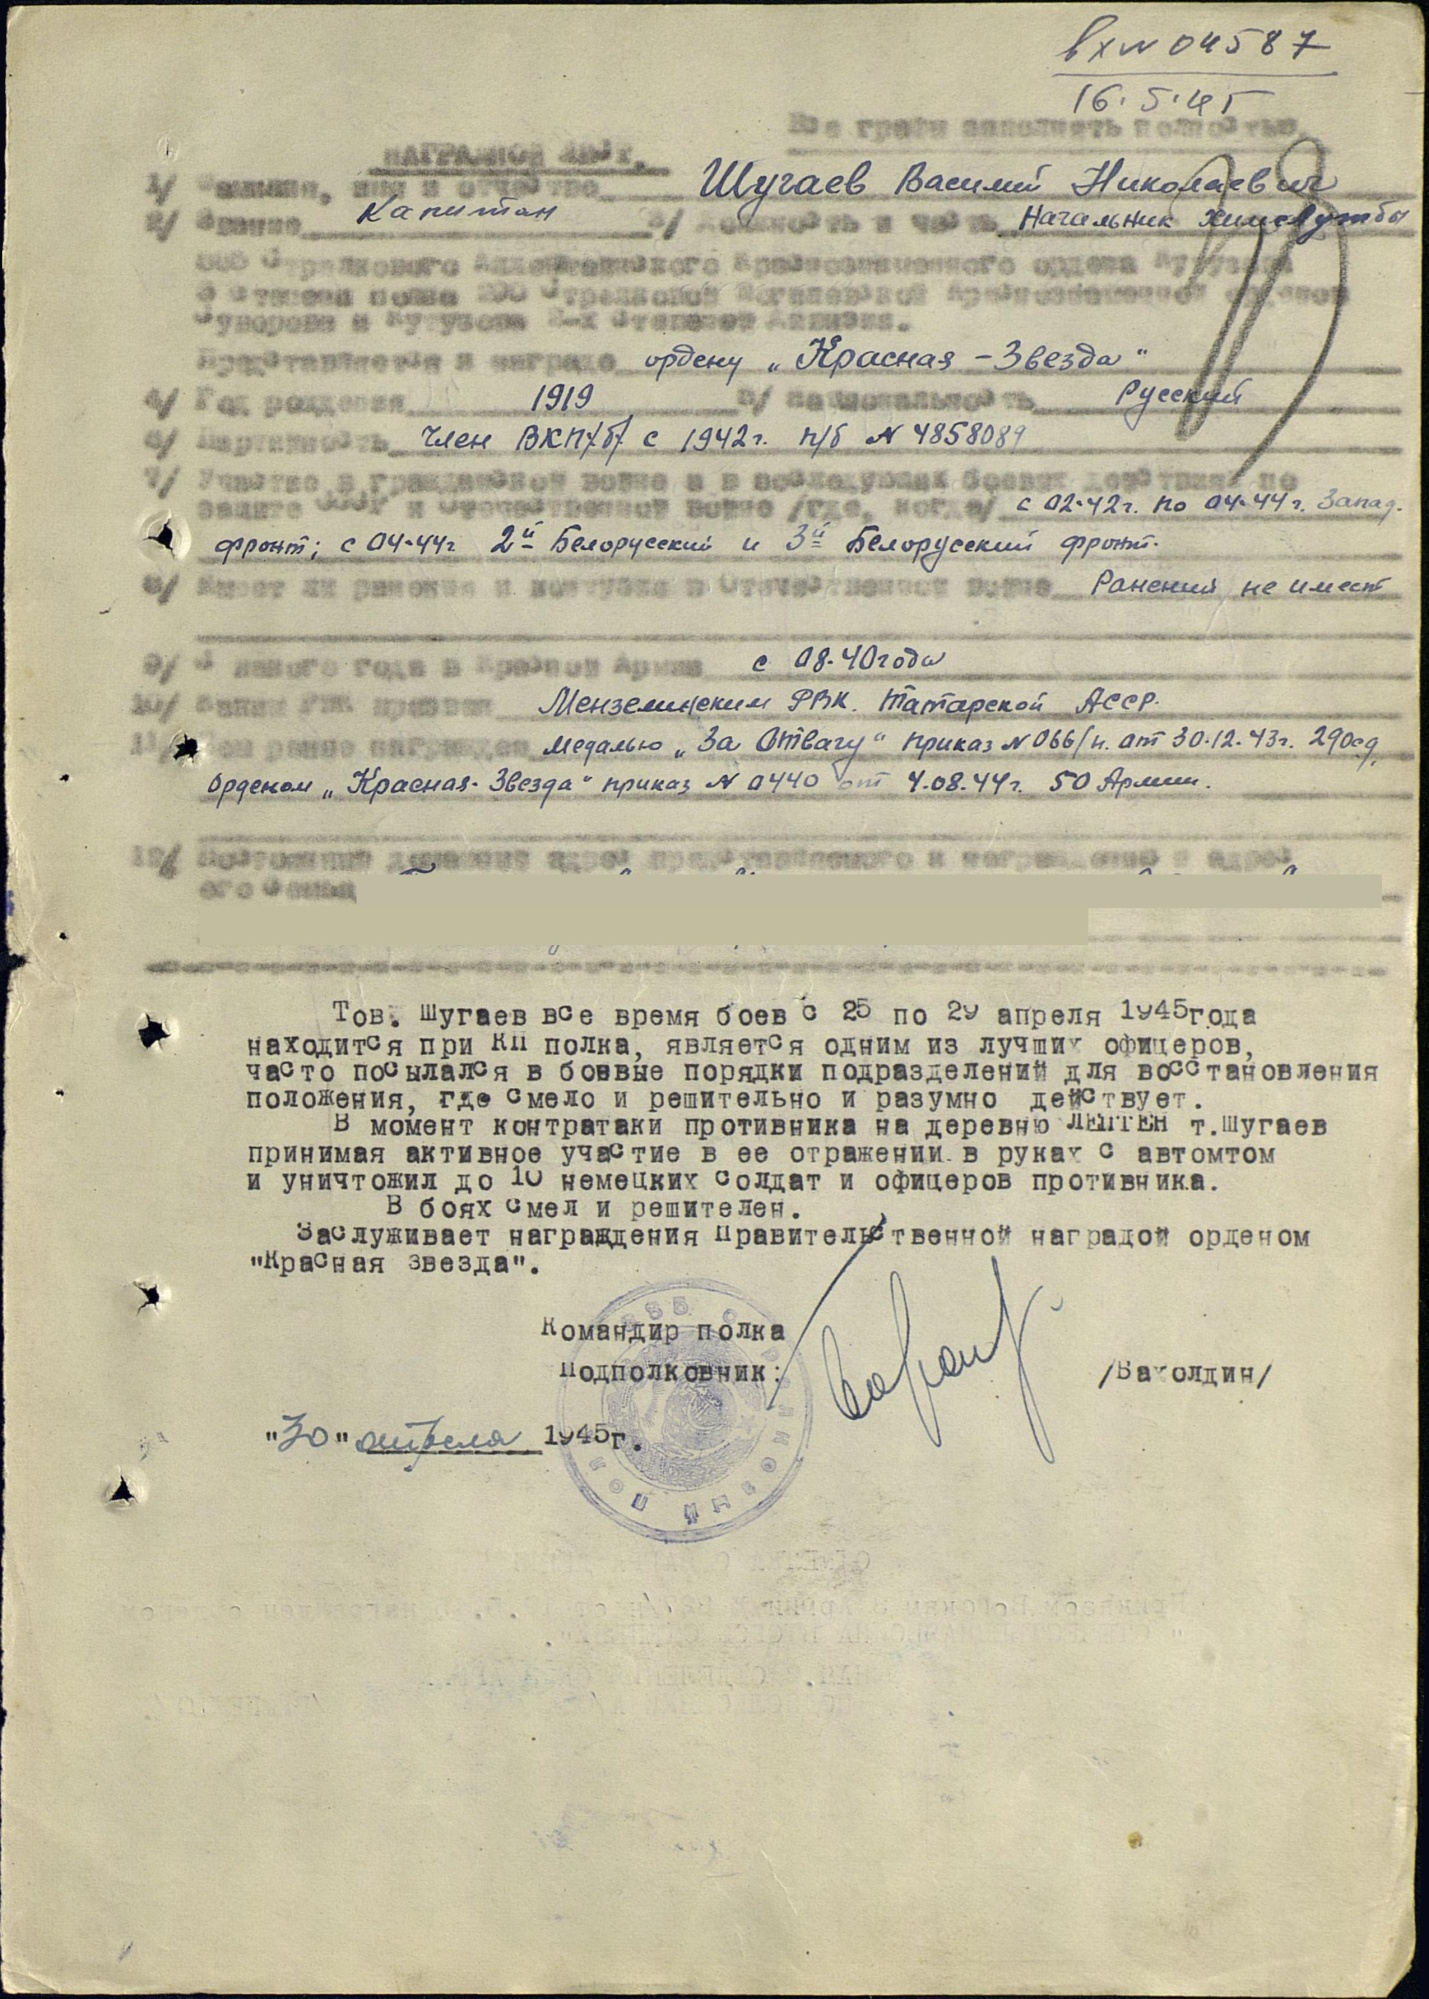 вх № 04587
16.5.45
Все графы заполнять полностью.
НАГРАДНОЙ ЛИСТ.
1/ Фамилия, имя и отчество Шугаев Василий Николаевич
2/ Звание Капитан 3/ Должность и часть Начальник химслужбы
885 Стрелкового Краснознаменного ордена Кутузова
3 степени полка 290 Стрелковой Могилевской Краснознаменной орденов
Суворова и Кутузова 2-х степеней дивизии.
Представляется к награде ордену „Красная-Звезда"
4/ Год рождения 1919 5/ Национальность Русский
6/ Партийность Член ВКП/б/ с 1942г. п/б № 4858089
7/ Участие в гражданской войне и в последующих боевых действиях по
защите СССР и Отечественной войне /где, когда/ с 02-42г. по 04-44г. Запад.
фронт; с 04-44г 2й Белорусский и 3й Белорусский фронт.
8/ Имеет ли ранения и контузии в Отечественной войне Ранений не имеет
9/ С какого года в Красной Армии с 08-40года
10/ Каким РВК призван Мензелинским РВК. Татарской АССР.
11/ Чем ранее награжден медалью „За Отвагу" приказ № 066/н. от 30.12.43г. 290сд,
орденом „Красная-Звезда" приказ № 0440 от 4.08.44г. 50 Армии.
12/ Постоянный домашний адрес представляемого к награждению и адрес
его семьи
Тов. Шугаев все время боев с 25 по 29 апреля 1945года
находится при КП полка, является одним из лучших офицеров,
часто посылался в боевые порядки подразделений для восстановления
положения, где смело и решительно и разумно действует.
В момент контратаки противника на деревню ЛЕПТЕН т.Шугаев
принимая активное участие в ее отражении в руках с автомтом
и уничтожил до 10 немецких солдат и офицеров противника.
В боях смел и решителен.
Заслуживает награждения Правительственной наградой орденом
"Красная звезда".
Командир полка
Подполковник: /Вахолдин/
"30" апреля 1945г.
СТРЕЛКОВЫЙ ПОЛК